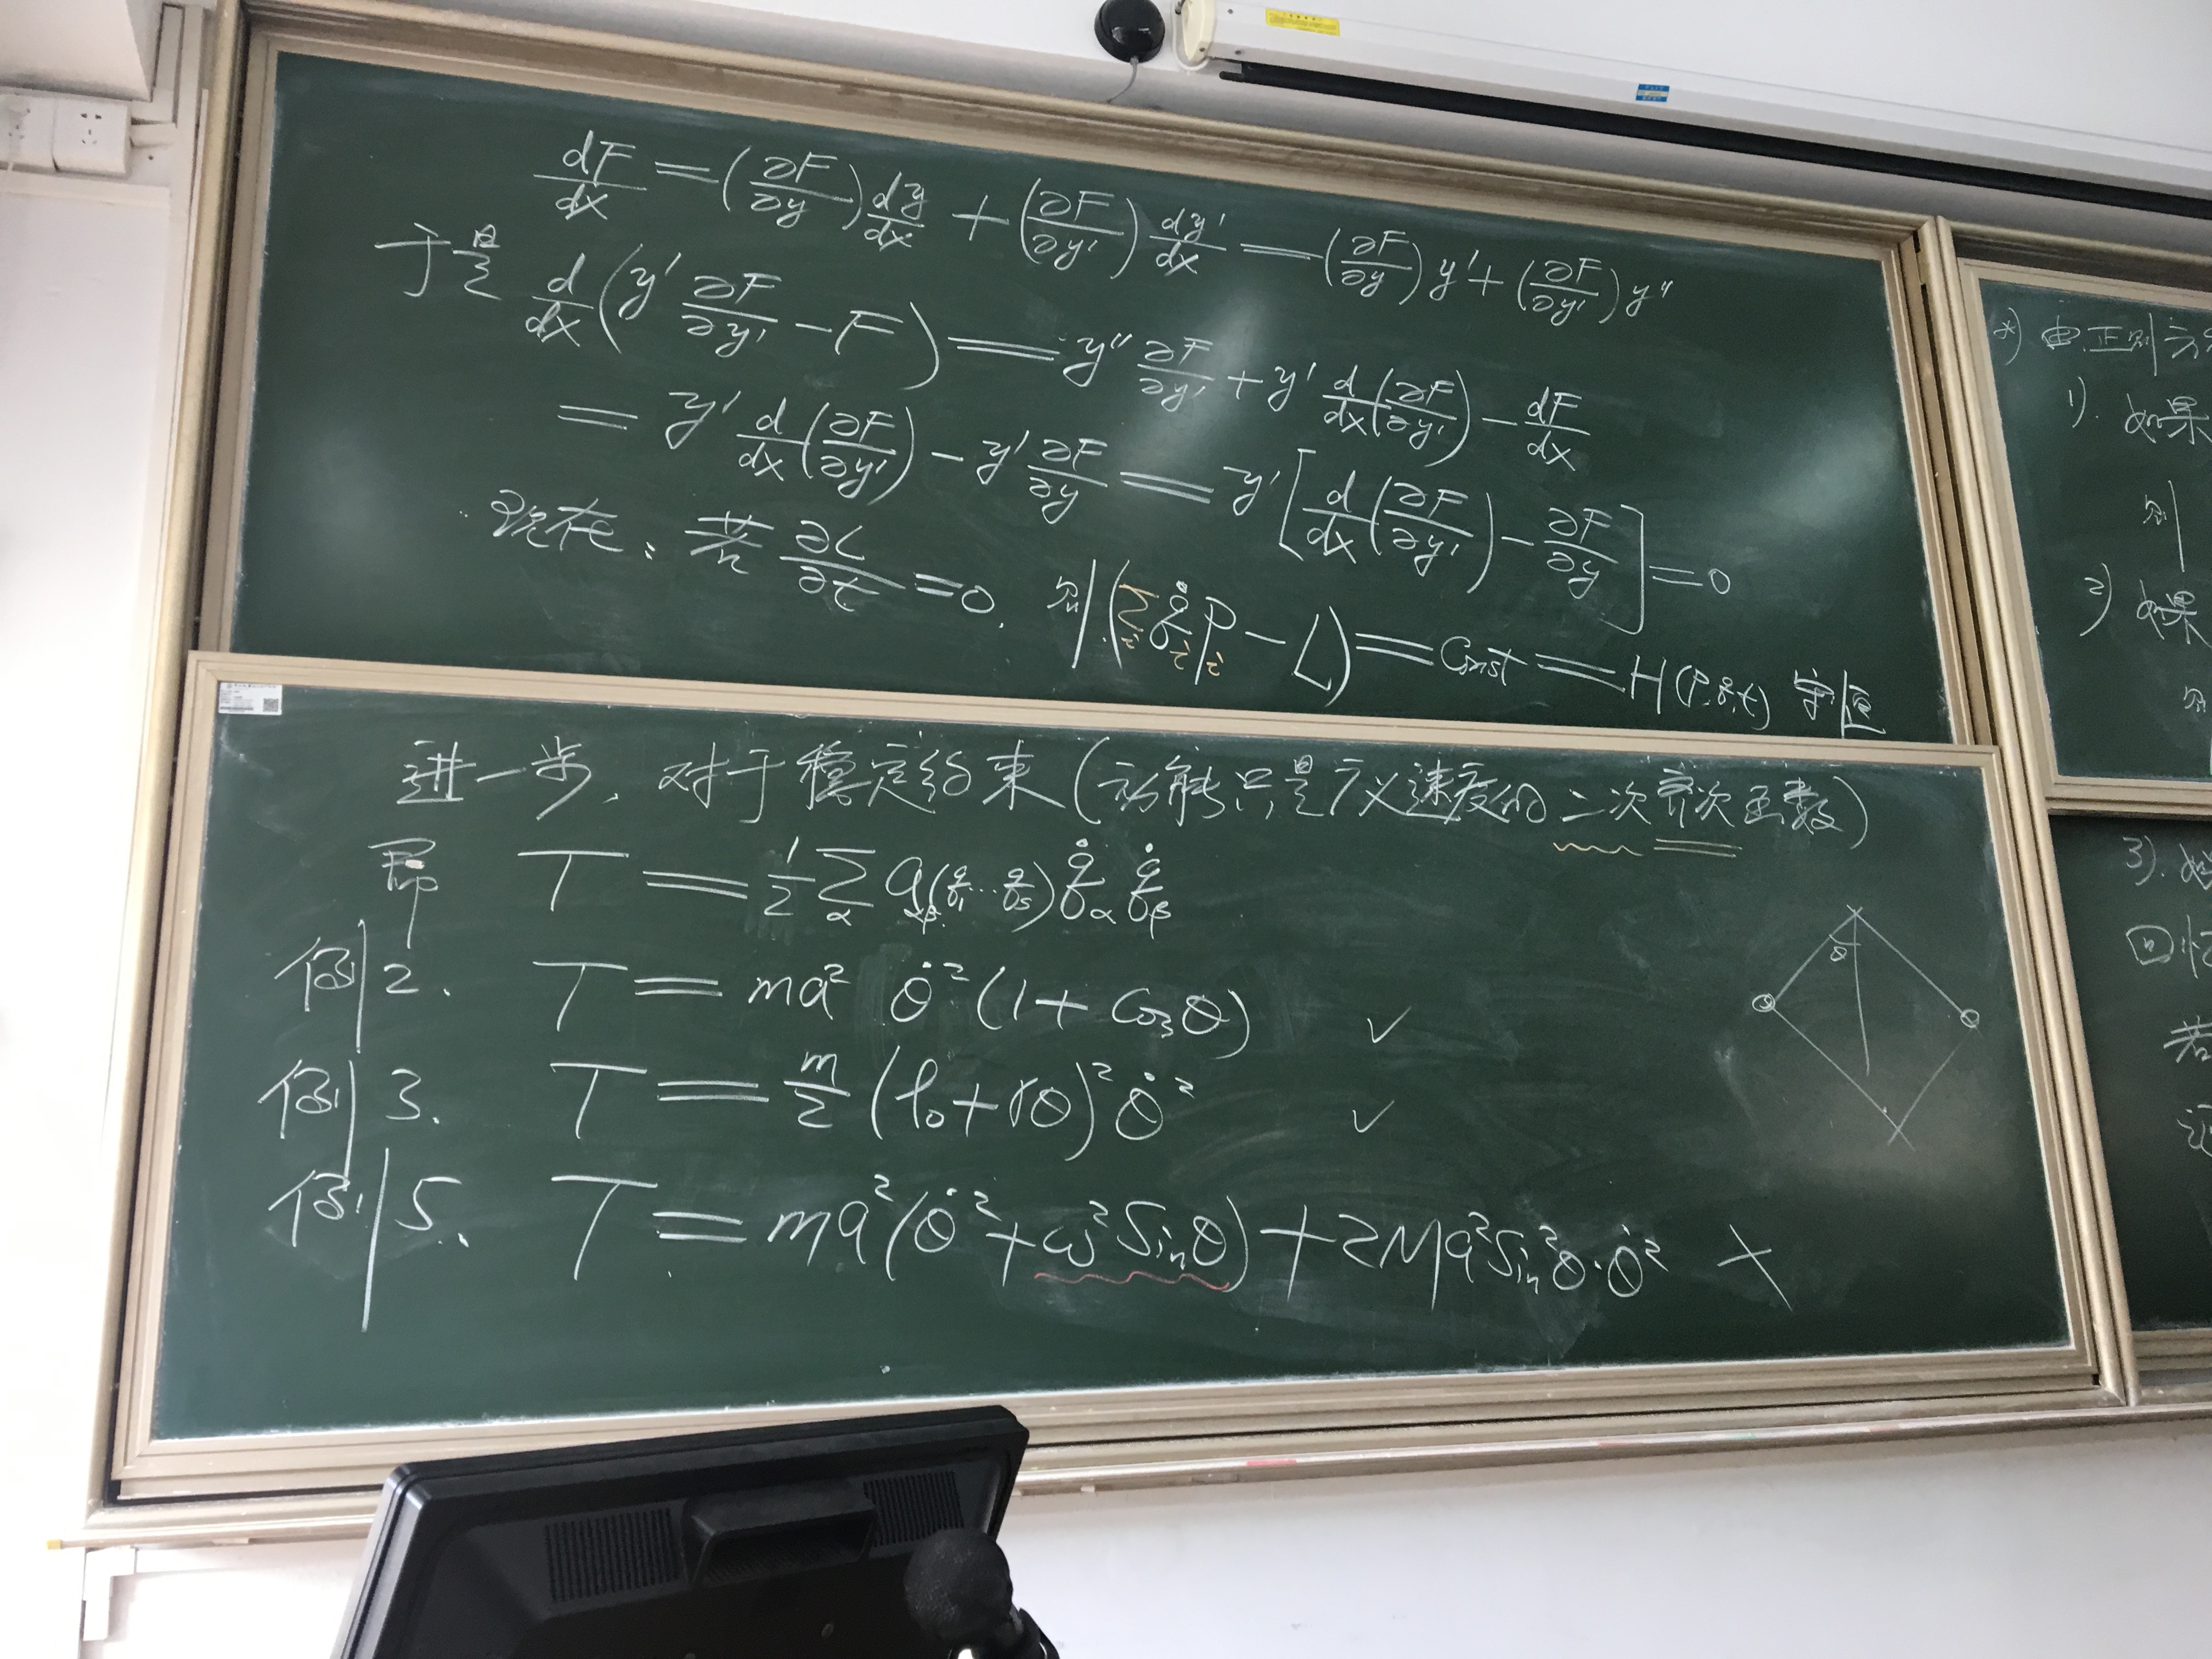 dF/dx = (∂F/∂y) dy/dx + (∂F/∂y') dy'/dx = (∂F/∂y) y' + (∂F/∂y') y''
于是 d/dx (y' ∂F/∂y' - F) = y'' ∂F/∂y' + y' d/dx (∂F/∂y') - dF/dx
= y' d/dx (∂F/∂y') - y' ∂F/∂y = y' [d/dx (∂F/∂y') - ∂F/∂y] = 0
现在: 若 ∂L/∂t = 0. 则 (∑_i q̇_i p_i - L) = Const = H(p,q,t) 守恒
进一步, 对于稳定约束 (动能只是广义速度的二次齐次函数)
即 T = 1/2 ∑_α a_αβ(q_1…q_s) q̇_α q̇_β
例2. T = ma² θ̇² (1 + cosθ) ✓
例3. T = m/2 (l₀ + rθ)² θ̇² ✓
例5. T = ma² (θ̇² + ω² Sinθ) + 2Ma² Sin²θ·θ̇² ×
θ
*) 由正则方
1). 如果
则
2) 如果
则
3). 如
回忆
若